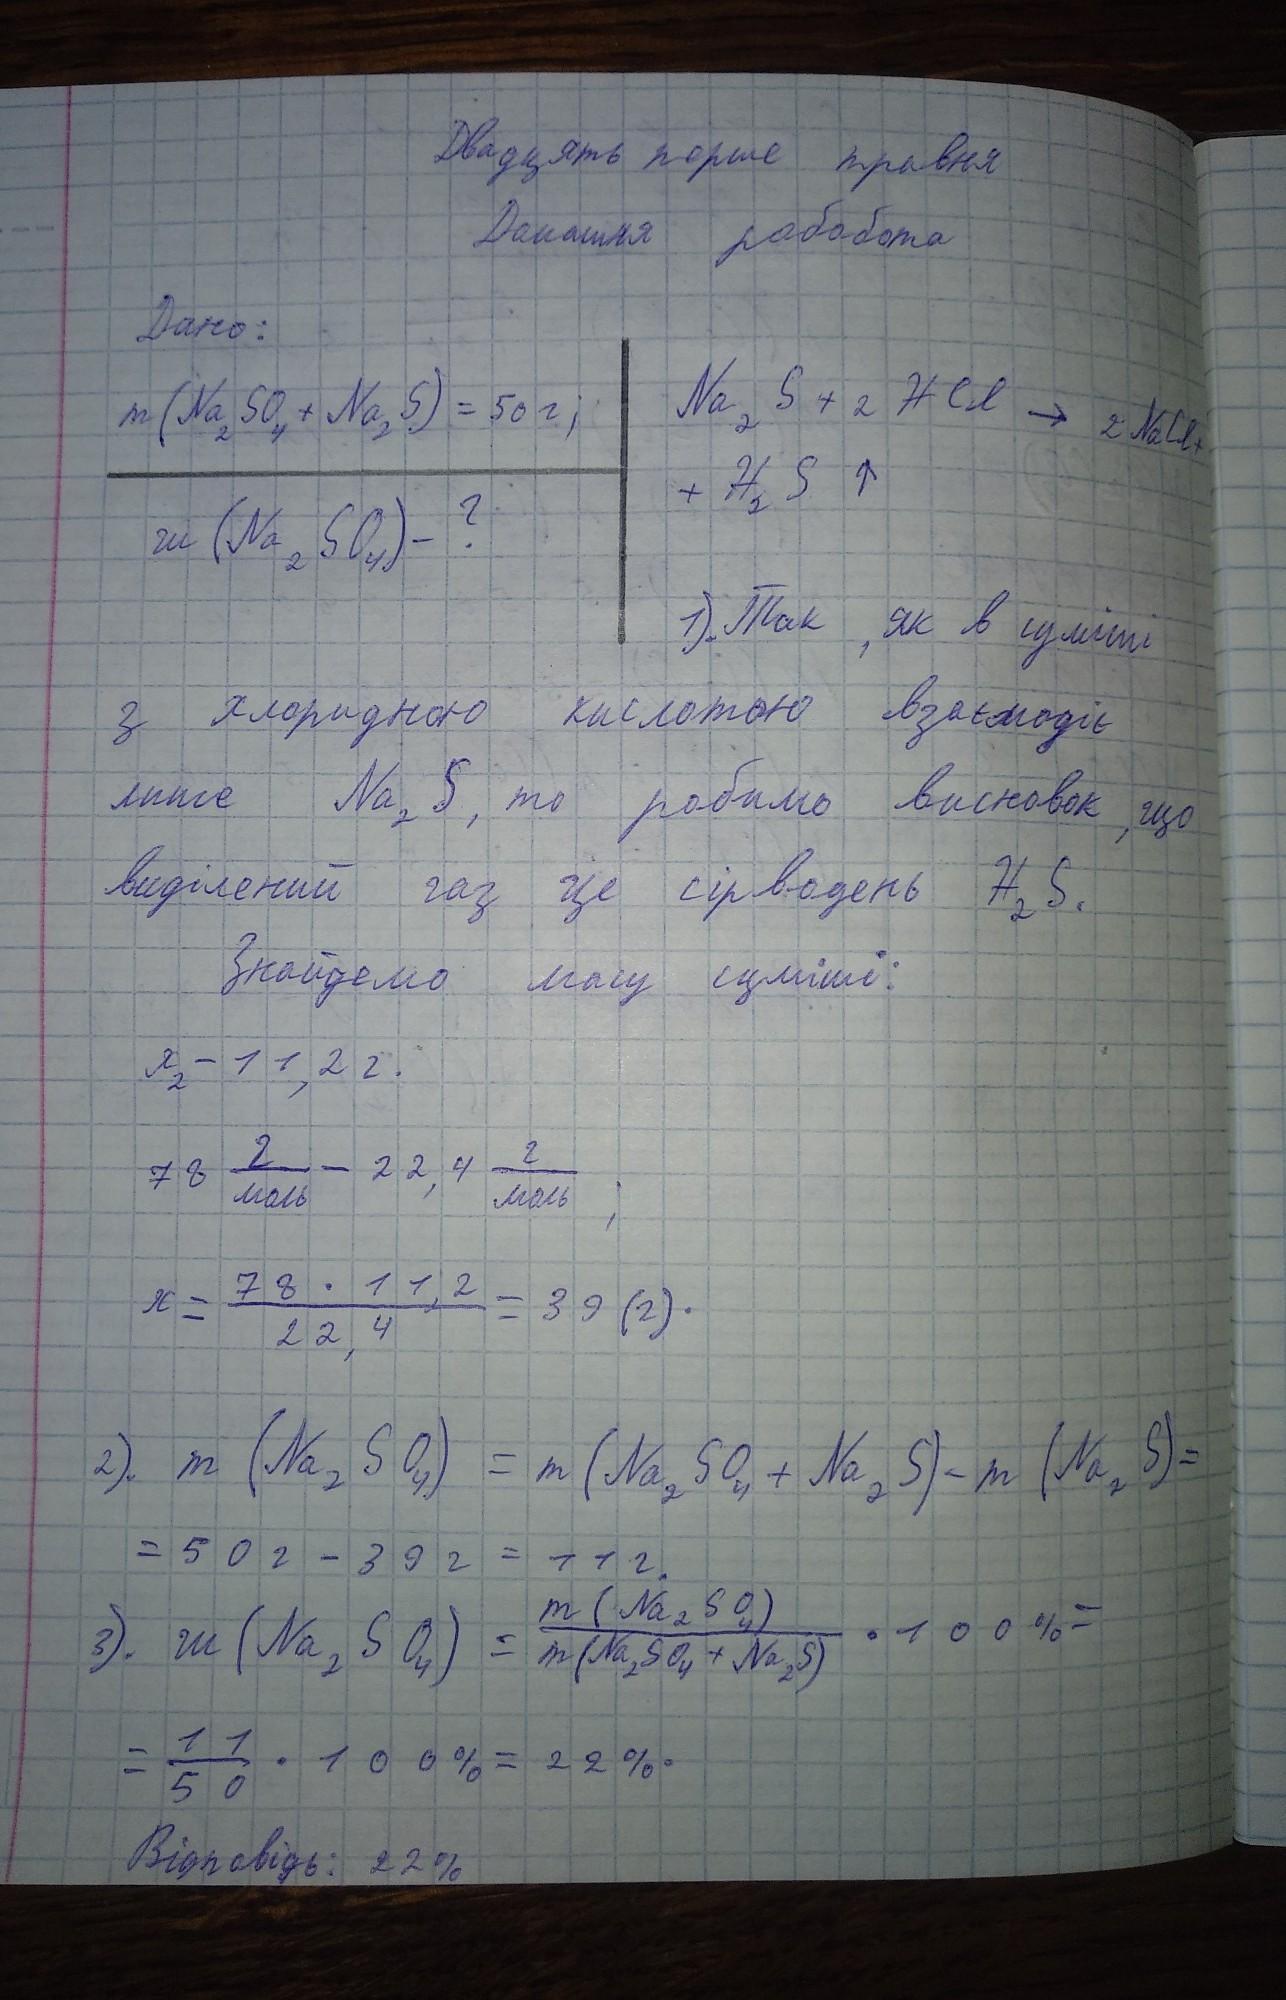 Двадцять перше травня
Домашня рабобота
Дано:
m(Na₂SO₄ + Na₂S) = 50 г;
ш(Na₂SO₄) - ?
Na₂S + 2HCl → 2NaCl +
+ H₂S ↑
1). Так, як в суміші
з хлоридною кислотою взаємодіє
лише Na₂S, то робимо висновок, що
виділений газ це сірводень H₂S.
Знайдемо масу суміші:
x₂ - 11,2 г.
78 г/моль - 22,4 г/моль;
x = (78 · 11,2)/22,4 = 39 (г).
2). m(Na₂SO₄) = m(Na₂SO₄ + Na₂S) - m(Na₂S) =
= 50 г - 39 г = 11 г.
3). ш(Na₂SO₄) = m(Na₂SO₄)/m(Na₂SO₄ + Na₂S) · 100% =
= 11/50 · 100% = 22%.
Відповідь: 22%